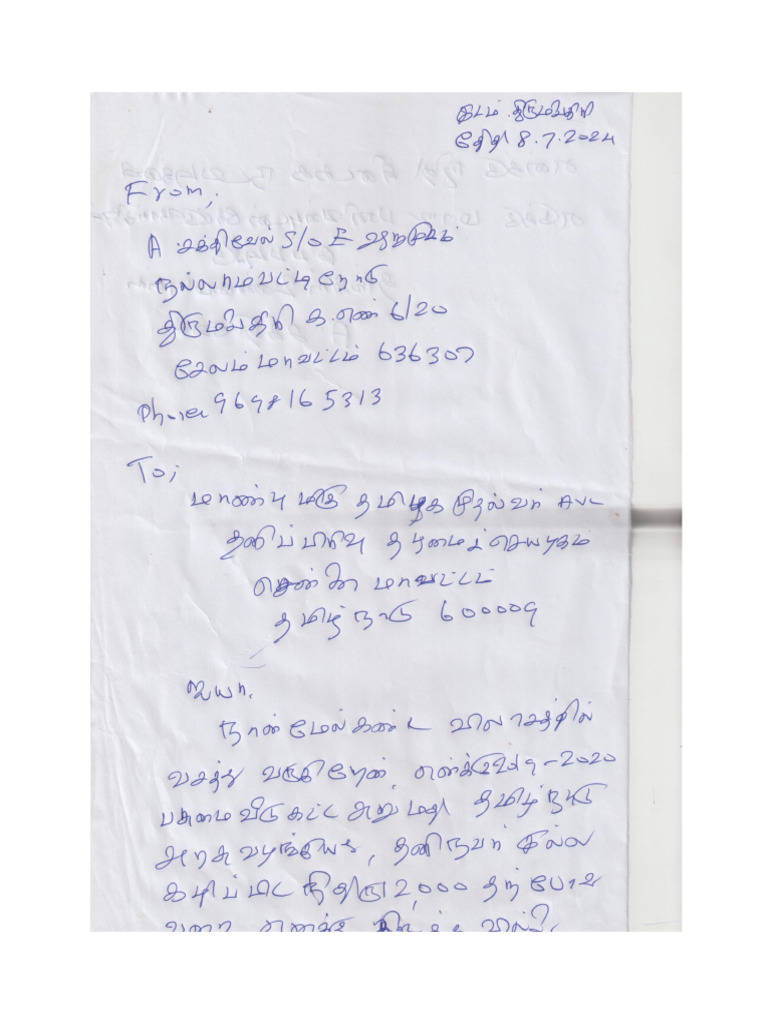 இடம். திருமலகிரி
தேதி 8.7.2024
From,
A. சக்திவேல் S/o E ஆறுமுகம்
நல்லாம்பட்டி ரோடு
திருமலகிரி க.எண் 6/20
சேலம் மாவட்டம் 636307
Phone 9698165313
To;
மாண்புமிகு தமிழக முதல்வர் AVL
தனிப்பிரிவு தலைமைச் செயலகம்
சென்னை மாவட்டம்
தமிழ்நாடு 600009
ஐயா.
நான் மேல்கண்ட விலாசத்தில்
வசித்து வருகிறேன், எனக்கு 2019-2020
பசுமை வீடு கட்ட அனுமதி தமிழ்நாடு
அரசு வழங்கியது, தனிநபர் இல்ல
கழிப்பிட நிதி ரூ12,000 தற்போது
வரை எனக்கு